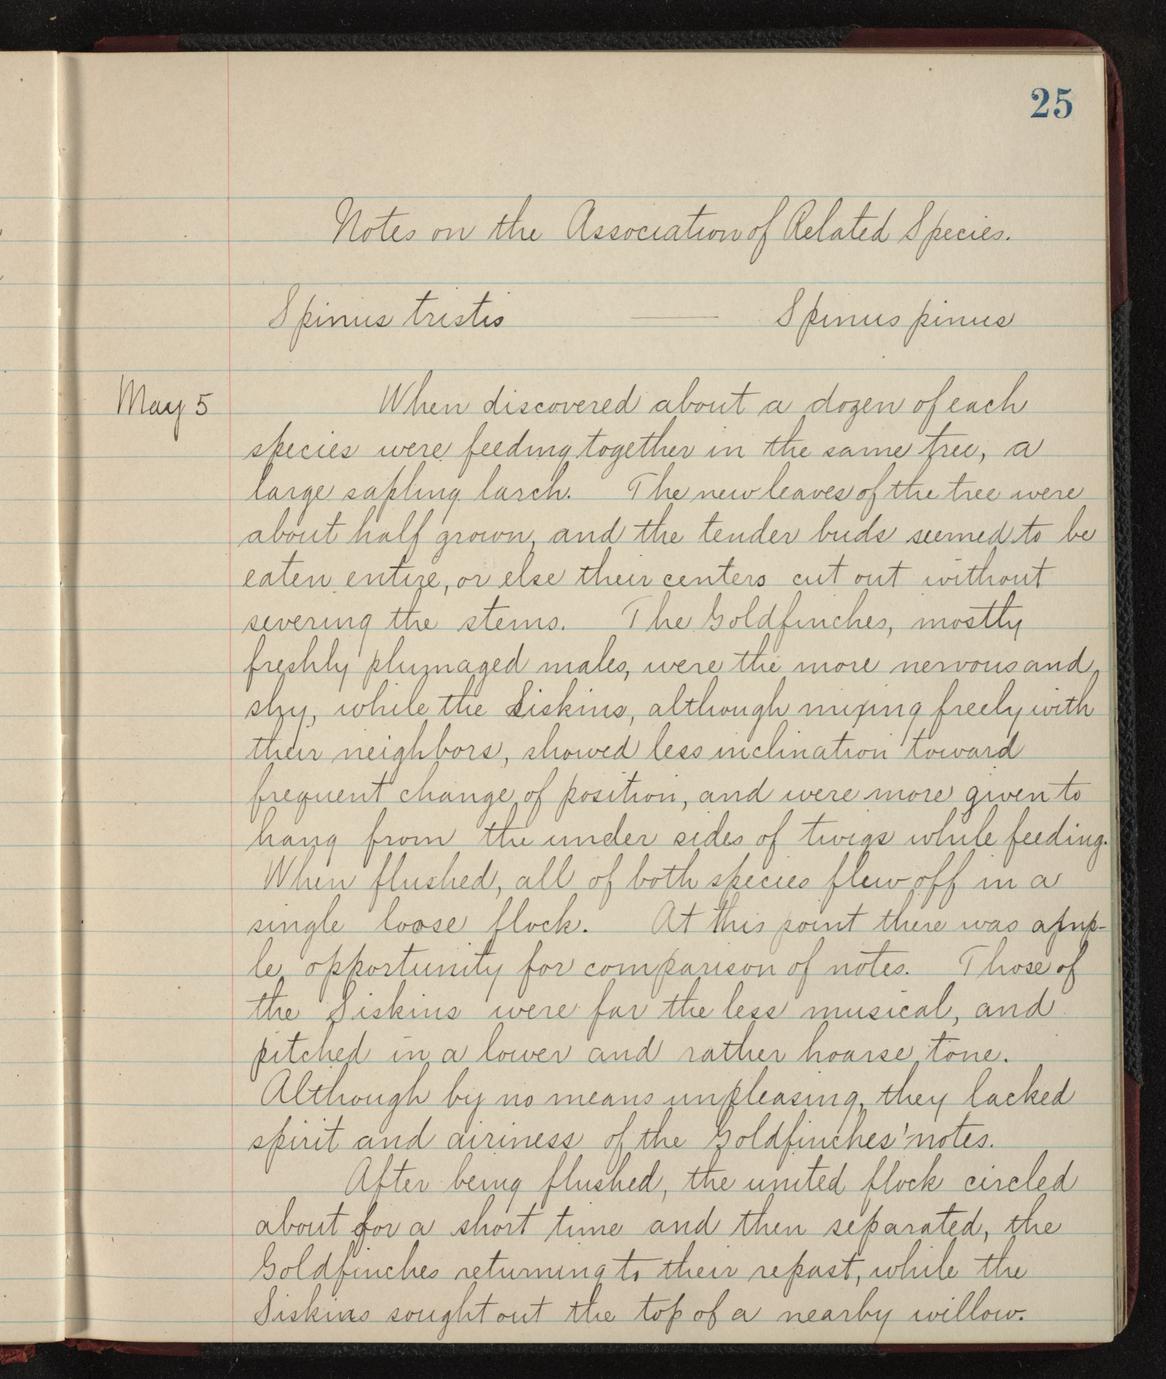 25
Notes on the Association of Related Species.
Spinus tristis —— Spinus pinus
May 5 When discovered about a dozen of each
species were feeding together in the same tree, a
large sapling larch. The new leaves of the tree were
about half grown, and the tender buds seemed to be
eaten entire, or else their centers cut out without
severing the stems. The Goldfinches, mostly
freshly plumaged males, were the more nervous and
shy, while the Siskins, although mixing freely with
their neighbors, showed less inclination toward
frequent change of position, and were more given to
hang from the under sides of twigs while feeding.
When flushed, all of both species flew off in a
single loose flock. At this point there was amp-
le opportunity for comparison of notes. Those of
the Siskins were far the less musical, and
pitched in a lower and rather hoarse tone.
Although by no means unpleasing, they lacked
spirit and airiness of the Goldfinches' notes.
After being flushed, the united flock circled
about for a short time and then separated, the
Goldfinches returning to their repast, while the
Siskins sought out the top of a nearby willow.